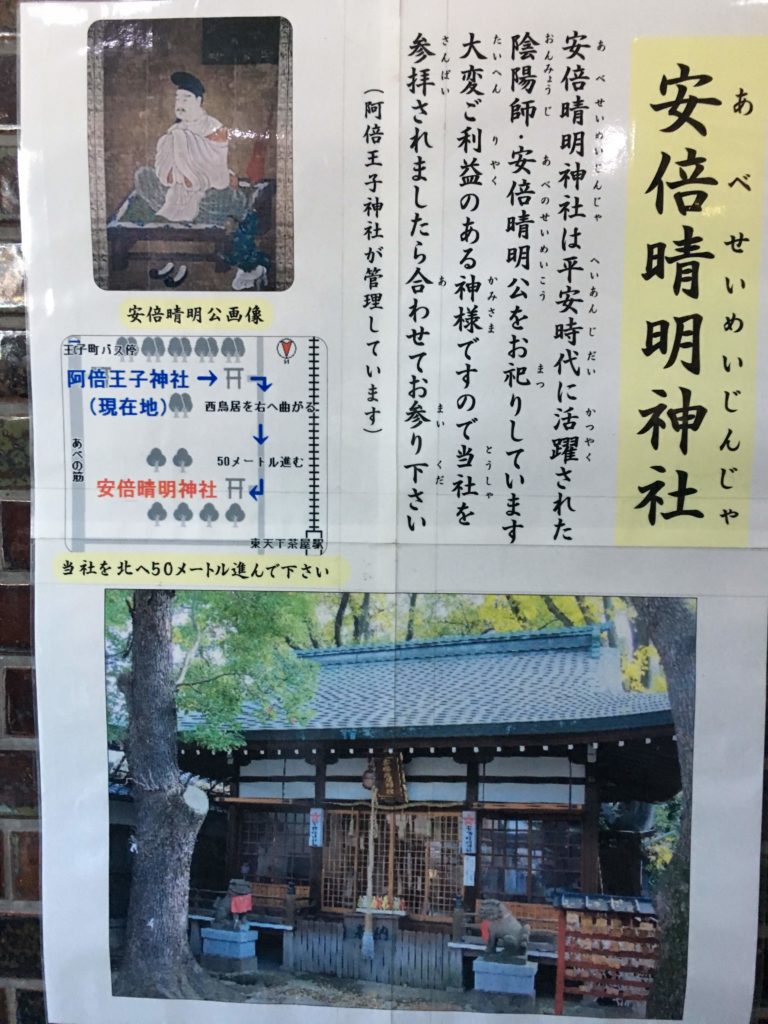 安倍晴明神社
あべせいめいじんじゃ
安倍晴明神社は平安時代に活躍された
あべせいめいじんじゃ へいあんじだい かつやく
陰陽師・安倍晴明公をお祀りしています
おんみょうじ あべのせいめいこう まつ
大変ご利益のある神様ですので当社を
たいへん りやく かみさま とうしゃ
参拝されましたら合わせてお参り下さい
さんぱい あ まい くだ
(阿倍王子神社が管理しています)
安倍晴明公画像
王子町バス停
阿倍王子神社→
(現在地)
西鳥居を右へ曲がる
50メートル進む
あべの筋
安倍晴明神社
東天下茶屋駅
当社を北へ50メートル進んで下さい